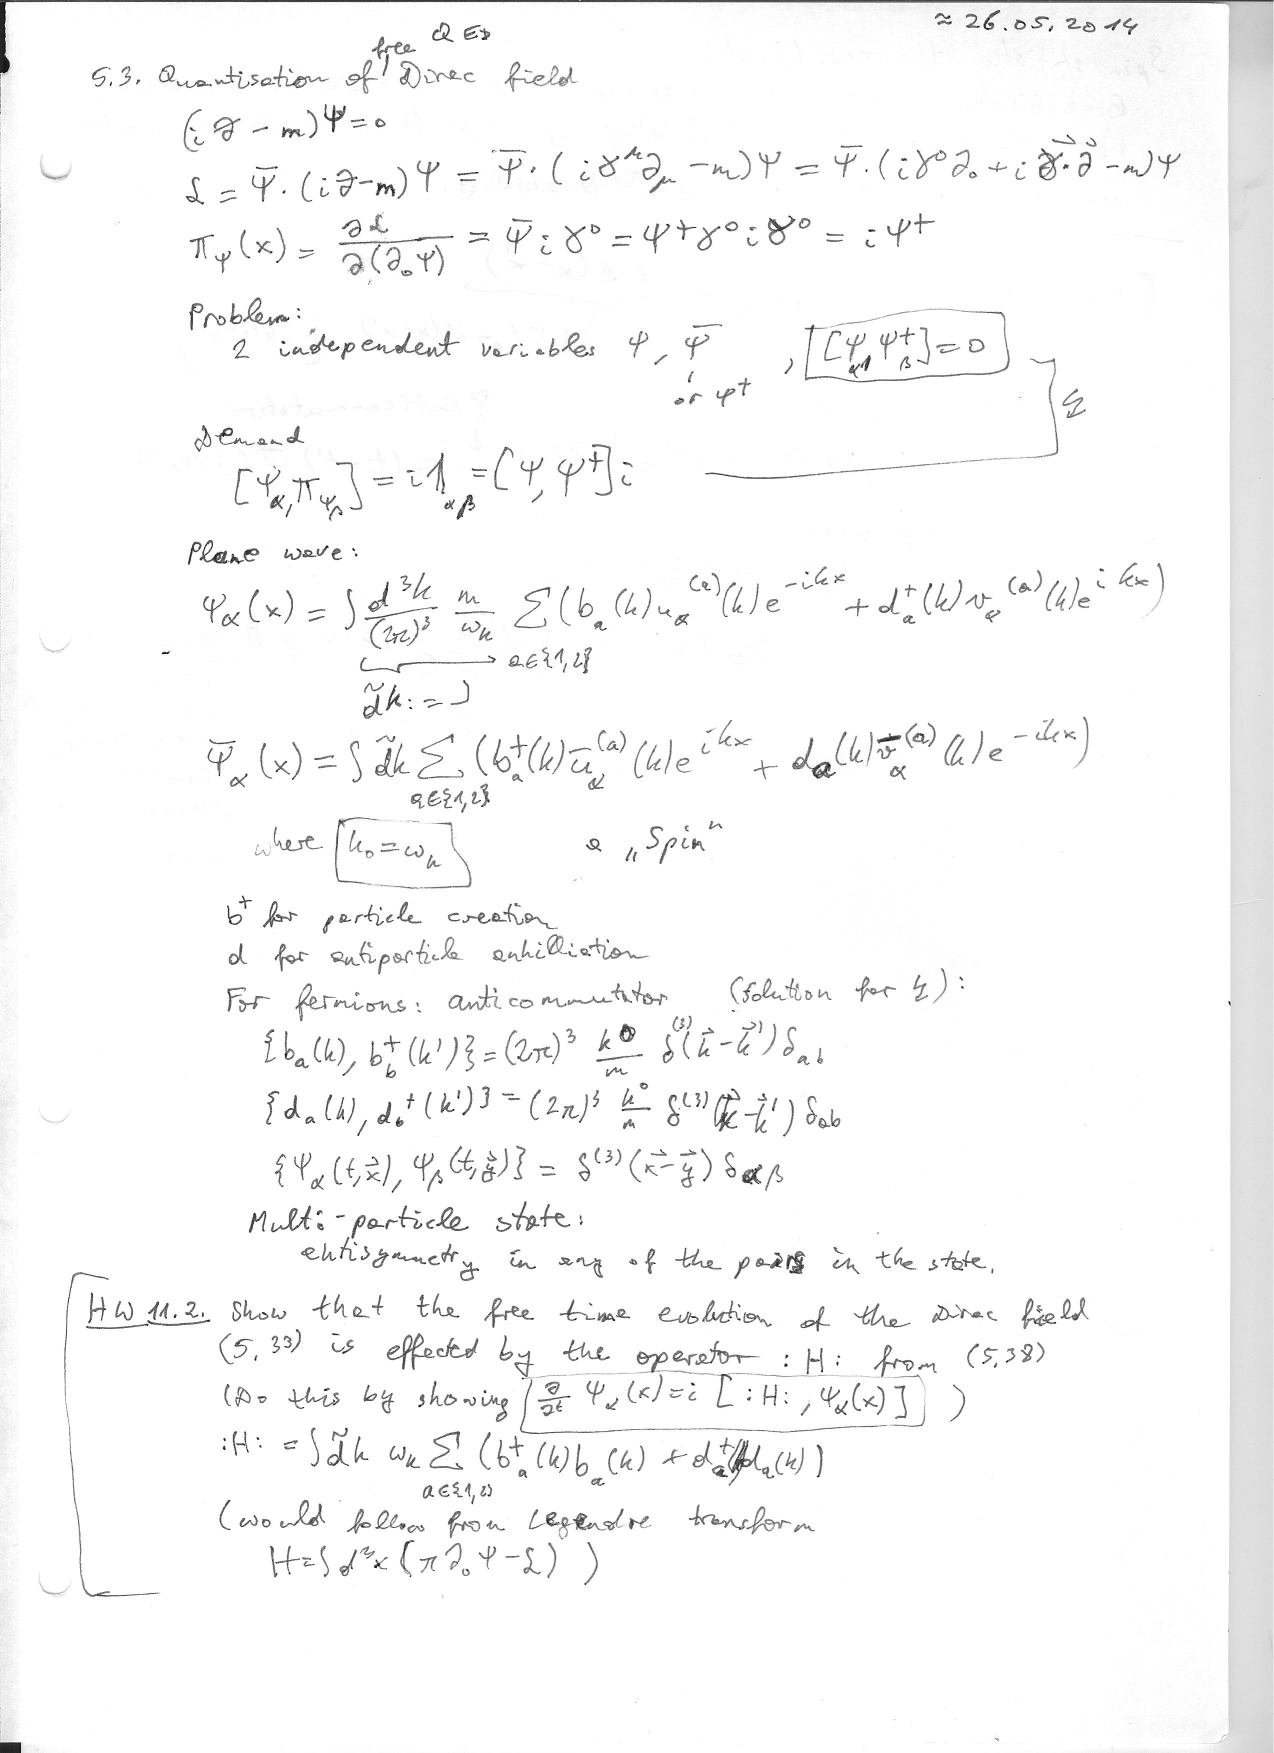 ≈ 26.05.2014
free QED
5.3. Quantisation of Dirac field
(i∂ - m)Ψ = 0
ℒ = Ψ̄·(i∂-m)Ψ = Ψ̄·(iγ^μ∂_μ - m)Ψ = Ψ̄·(iγ⁰∂₀ + i γ⃗·∂⃗ - m)Ψ
π_Ψ(x) = ∂ℒ/∂(∂₀Ψ) = Ψ̄ i γ⁰ = Ψ⁺γ⁰ i γ⁰ = iΨ⁺
Problem:
2 independent variables Ψ, Ψ̄ , [Ψ_α, Ψ⁺_β] = 0
or Ψ⁺
Demand
[Ψ_α, π_Ψβ] = i 𝟙_αβ = [Ψ, Ψ⁺] i
Plane wave:
Ψ_α(x) = ∫ d³k/(2π)³ m/ω_k Σ (b_a(k) u_α^(a)(k) e^(-ikx) + d_a⁺(k) v_α^(a)(k) e^(ikx))
a∈{1,2}
d̃k :=
Ψ̄_α(x) = ∫ d̃k Σ (b_a⁺(k) ū_α^(a)(k) e^(ikx) + d_a(k) v̄_α^(a)(k) e^(-ikx))
a∈{1,2}
where k₀ = ω_k a „Spin"
b⁺ for particle creation
d for antiparticle anhilliation
For fermions: anticommutator (Solution for ↯):
{b_a(k), b_b⁺(k')} = (2π)³ k⁰/m δ^(3)(k⃗-k⃗') δ_ab
{d_a(k), d_b⁺(k')} = (2π)³ k⁰/m δ^(3)(k⃗-k⃗') δ_ab
{Ψ_α(t,x⃗), Ψ_β(t,y⃗)} = δ^(3)(x⃗-y⃗) δ_αβ
Multi-particle state:
antisymmetry in any of the pairs in the state.
HW 11.2. Show that the free time evolution of the Dirac field
(5,33) is effected by the operator :H: from (5,38)
(Do this by showing ∂/∂t Ψ_α(x) = i [:H:, Ψ_α(x)] )
:H: = ∫ d̃k ω_k Σ (b_a⁺(k) b_a(k) + d_a⁺(k) d_a(k))
a∈{1,2}
(would follow from Legendre transform
H = ∫ d³x (π ∂₀Ψ - ℒ) )